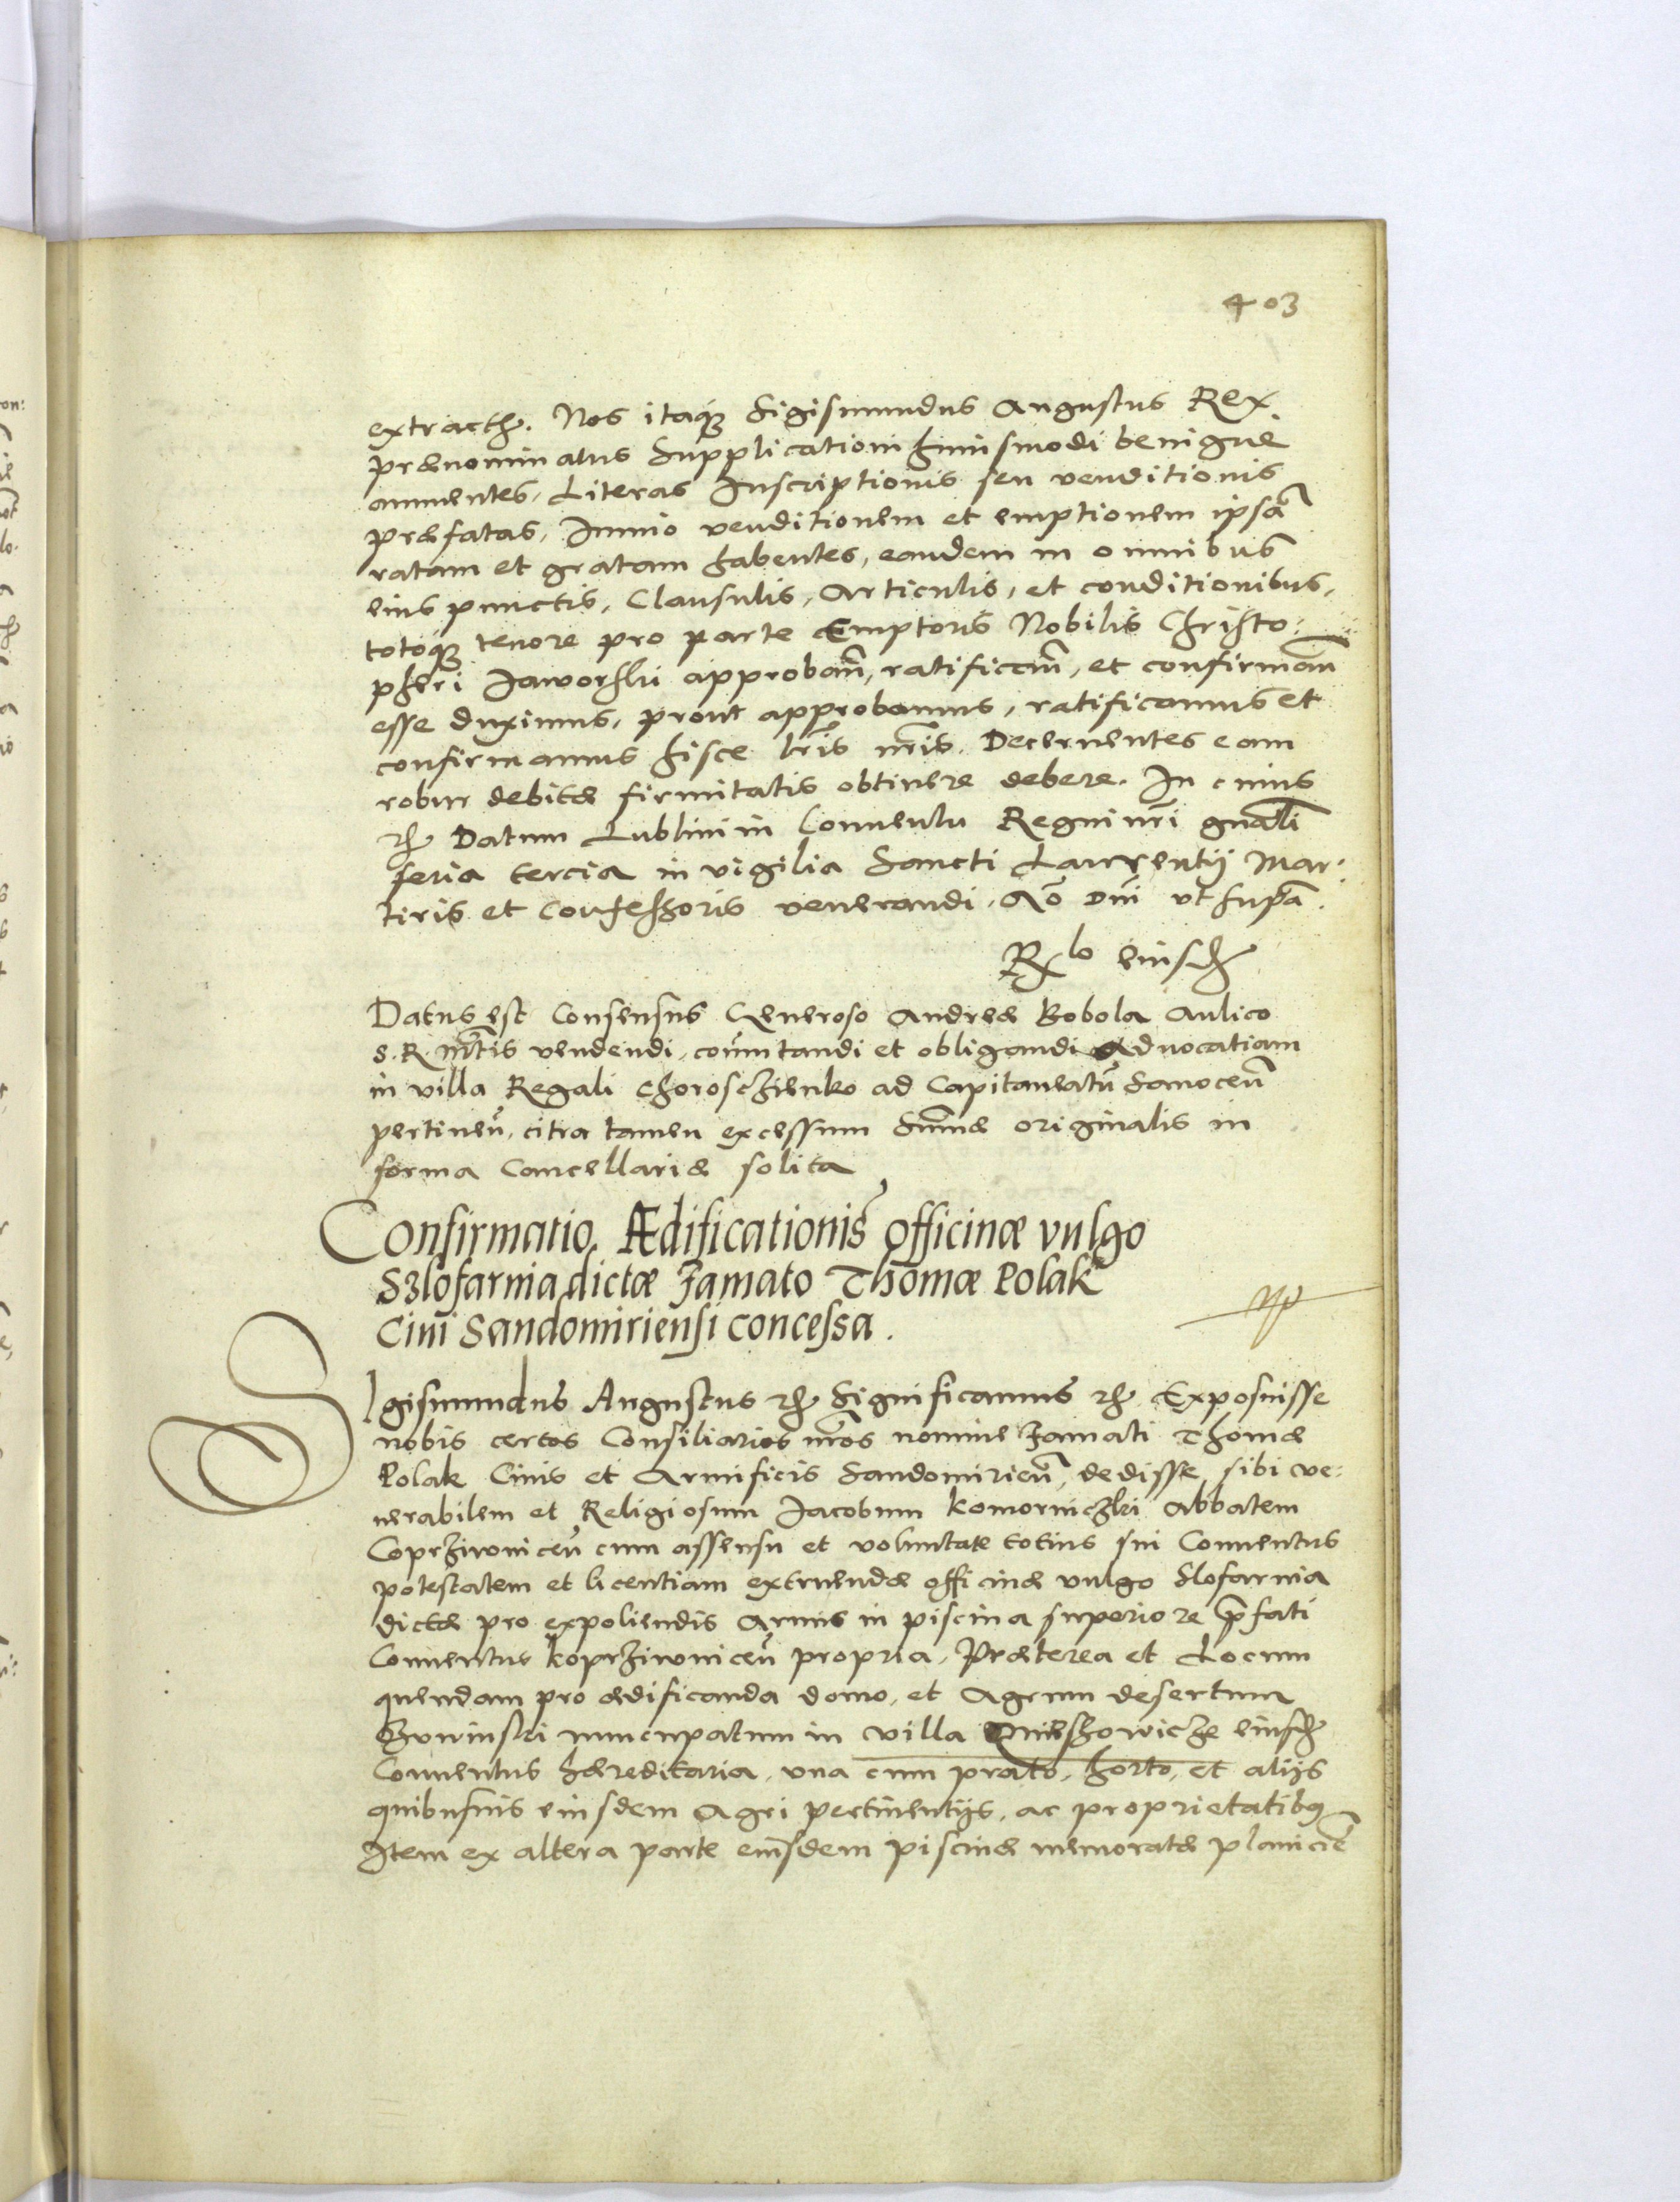 403
extractū. Nos itaq̃ Sigismundus Augustus Rex
prænominatus Supplicationi huiusmodi benigne
annuentes, Literas Inscriptionis seu venditionis
præfatas, Immo venditionem et emptionem ipsã
ratam et gratam habentes, eandem in omnibus
eius punctis, Clausulis, Articulis, et conditionibus,
totoq̃ tenore pro parte Emptoris Nobilis Christo:
pheri Jaworski approbañ, ratificañ, et confirmañ
esse duximus, prout approbamus, ratificamus et
confirmamus hisce lr̃is nr̃is. Decernentes eam
robur debitæ firmitatis obtinere debere. In cuius
rei Datum Lublini in Conuentu Regni nr̃i gnãli
feria tercia in vigilia Sancti Laurentij Mar:
tiris et Confessoris venerandi, Aõ Dñi vt supã.
Rlo eiusd
Datus est Consensus Generoso Andreæ Bobola Aulico
S. R. Mt̃is vendendi, com̃utandi et obligandi Aduocatiam
in villa Regali Choroschzienko ad Capitaneatũ Sanoceñ
pertineñ, citra tamen excessum Sum̃æ originalis in
forma Cancellariæ solita
Confirmatio Ædificationis officinæ vulgo
Szlofarnia dictæ Famato Thomæ Polak
Ciui Sandomiriensi concessa.
Sigismundus Augustus etc Significamus etc Exposuisse
nobis certos Consiliarios nr̃os nomine Famati Thomæ
Polak Ciuis et Armificis Sandomirieñ, dedisse sibi ve:
nerabilem et Religiosum Jacobum Komorniczki Abbatem
Coprziwniceñ cum assensu et voluntate totius sui Conuentus
potestatem et licentiam extruendæ officinæ vulgo Slofarnia
dictæ pro expoliendis Armis in piscina superiore p̃fati
Conuentus Koprziwniceñ propria, Præterea et Locum
quendam pro ædificanda domo, et Agrum desertum
nuncupatum in villa eiusd
Conuentus hæreditaria, vna cum prato, horto, et alijs
quibusuis eiusdem Agri pertinentijs, ac proprietatibq
Item ex altera parte eiusdem piscinæ memoratæ planiciẽ